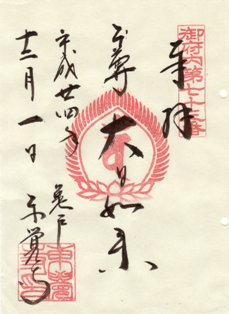 奉拝
御府内第七十三番
本尊 大日如来
平成廿四年
十二月一日
亀戸
東覚寺